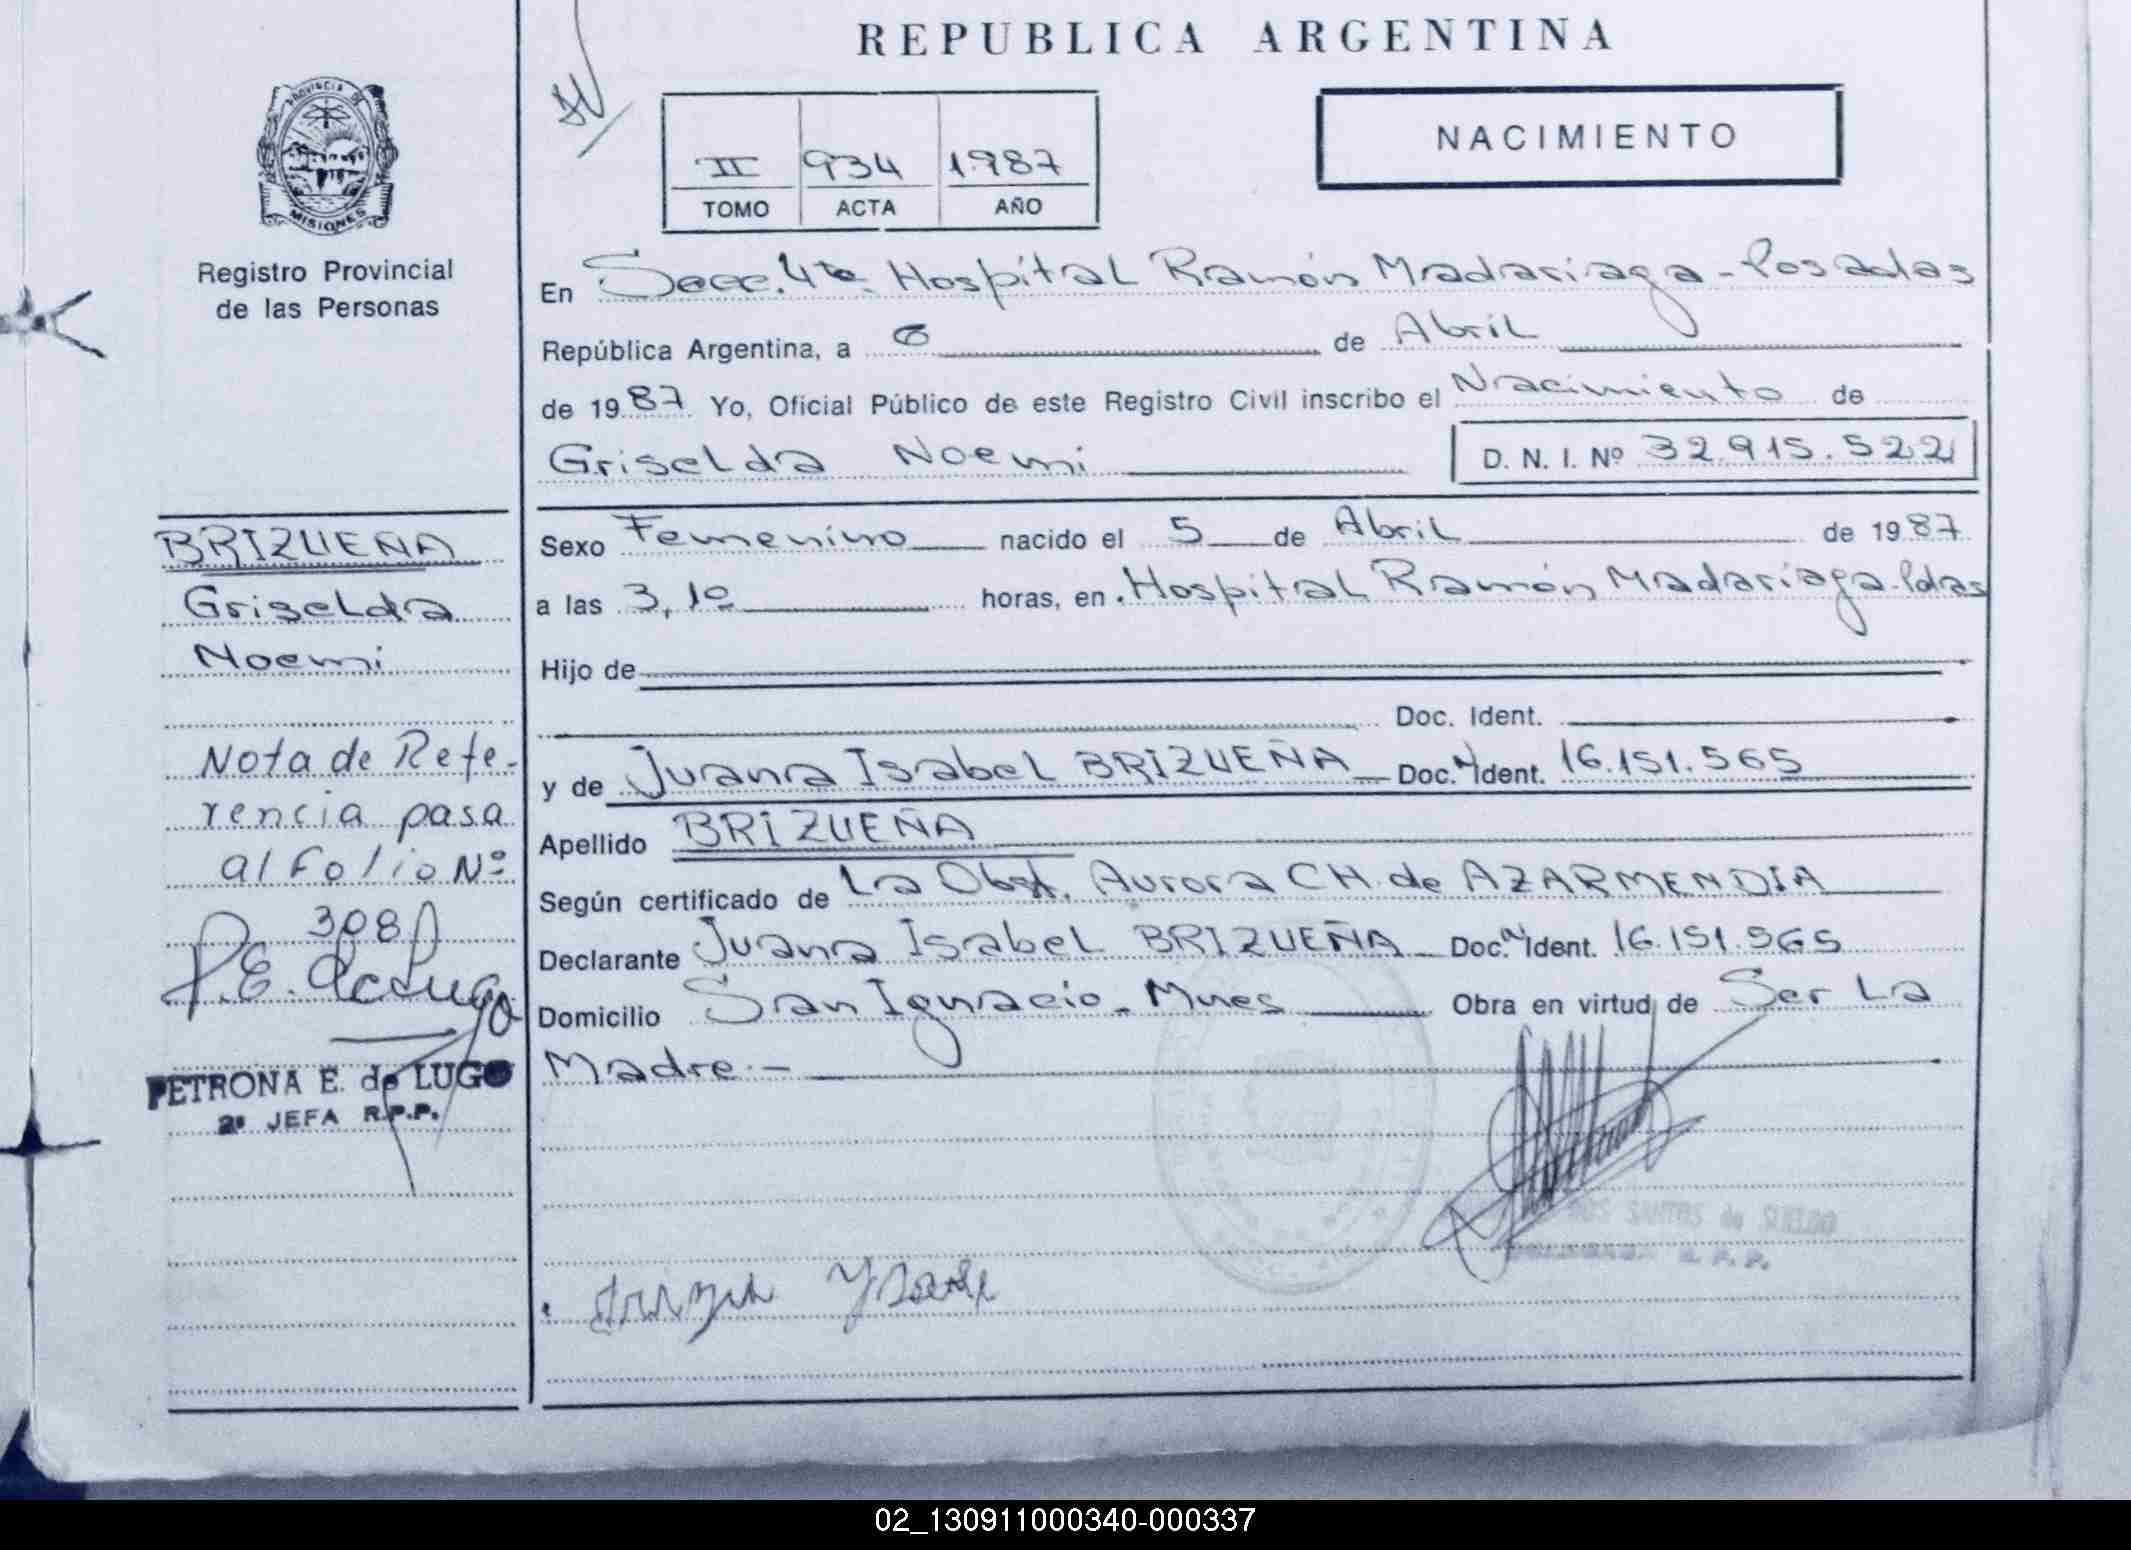 REPUBLICA ARGENTINA
PROVINCIA DE
MISIONES
Registro Provincial
de las Personas
II 934 1987
TOMO ACTA AÑO
NACIMIENTO
En Secc. 4ta. Hospital Ramón Madariaga - Posadas
República Argentina, a 6 de Abril
de 1987 Yo, Oficial Público de este Registro Civil inscribo el Nacimiento de
Griselda Noemi D. N. I. Nº 32.915.522
Sexo Femenino nacido el 5 de Abril de 1987
a las 3,10 horas, en Hospital Ramón Madariaga-Pdas
Hijo de
Doc. Ident.
y de Juana Isabel BRIZUEÑA Doc. Ident. 16.151.565
Apellido BRIZUEÑA
Según certificado de La Obst. Aurora CH. de AZARMENDIA
Declarante Juana Isabel BRIZUEÑA Doc. Ident. 16.151.565
Domicilio San Ignacio - Mnes Obra en virtud de Ser La
Madre.-
BRIZUEÑA
Griselda
Noemi
Nota de Refe-
rencia pasa
al Folio Nº
308
P.E. de Lugo
PETRONA E. de LUGO
2º JEFA R.P.P.
DOS SANTOS de SUELDO
R. P. P.
02_130911000340-000337